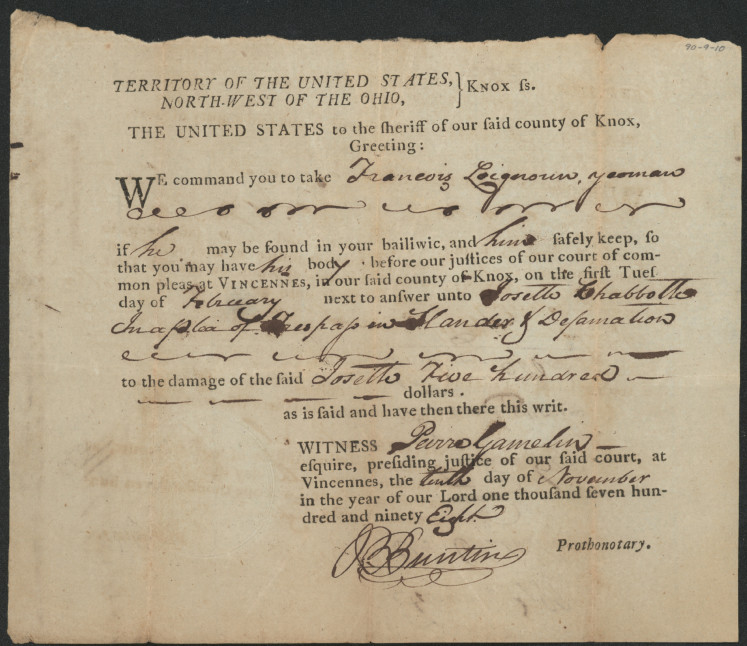 90-9-10
TERRITORY OF THE UNITED STATES, } KNOX ſs.
NORTH-WEST OF THE OHIO,
THE UNITED STATES to the ſheriff of our ſaid county of KNOX,
Greeting:
WE command you to take Francois Loignoun, yeoman
if he may be found in your bailiwic, and him ſafely keep, ſo
that you may have his body before our juſtices of our court of com-
mon pleas at VINCENNES, in our ſaid county of Knox, on the firſt Tueſ
day of February next to anſwer unto Josette Chabbotte
In a plea of Trespass in Slander & Defamation
to the damage of the ſaid Josette Five hundred
dollars.
as is ſaid and have then there this writ.
WITNESS Peirre Gamelin
eſquire, preſiding juſtice of our ſaid court, at
Vincennes, the tenth day of November
in the year of our Lord one thouſand ſeven hun-
dred and ninety Eight
Buntin Prothonotary.